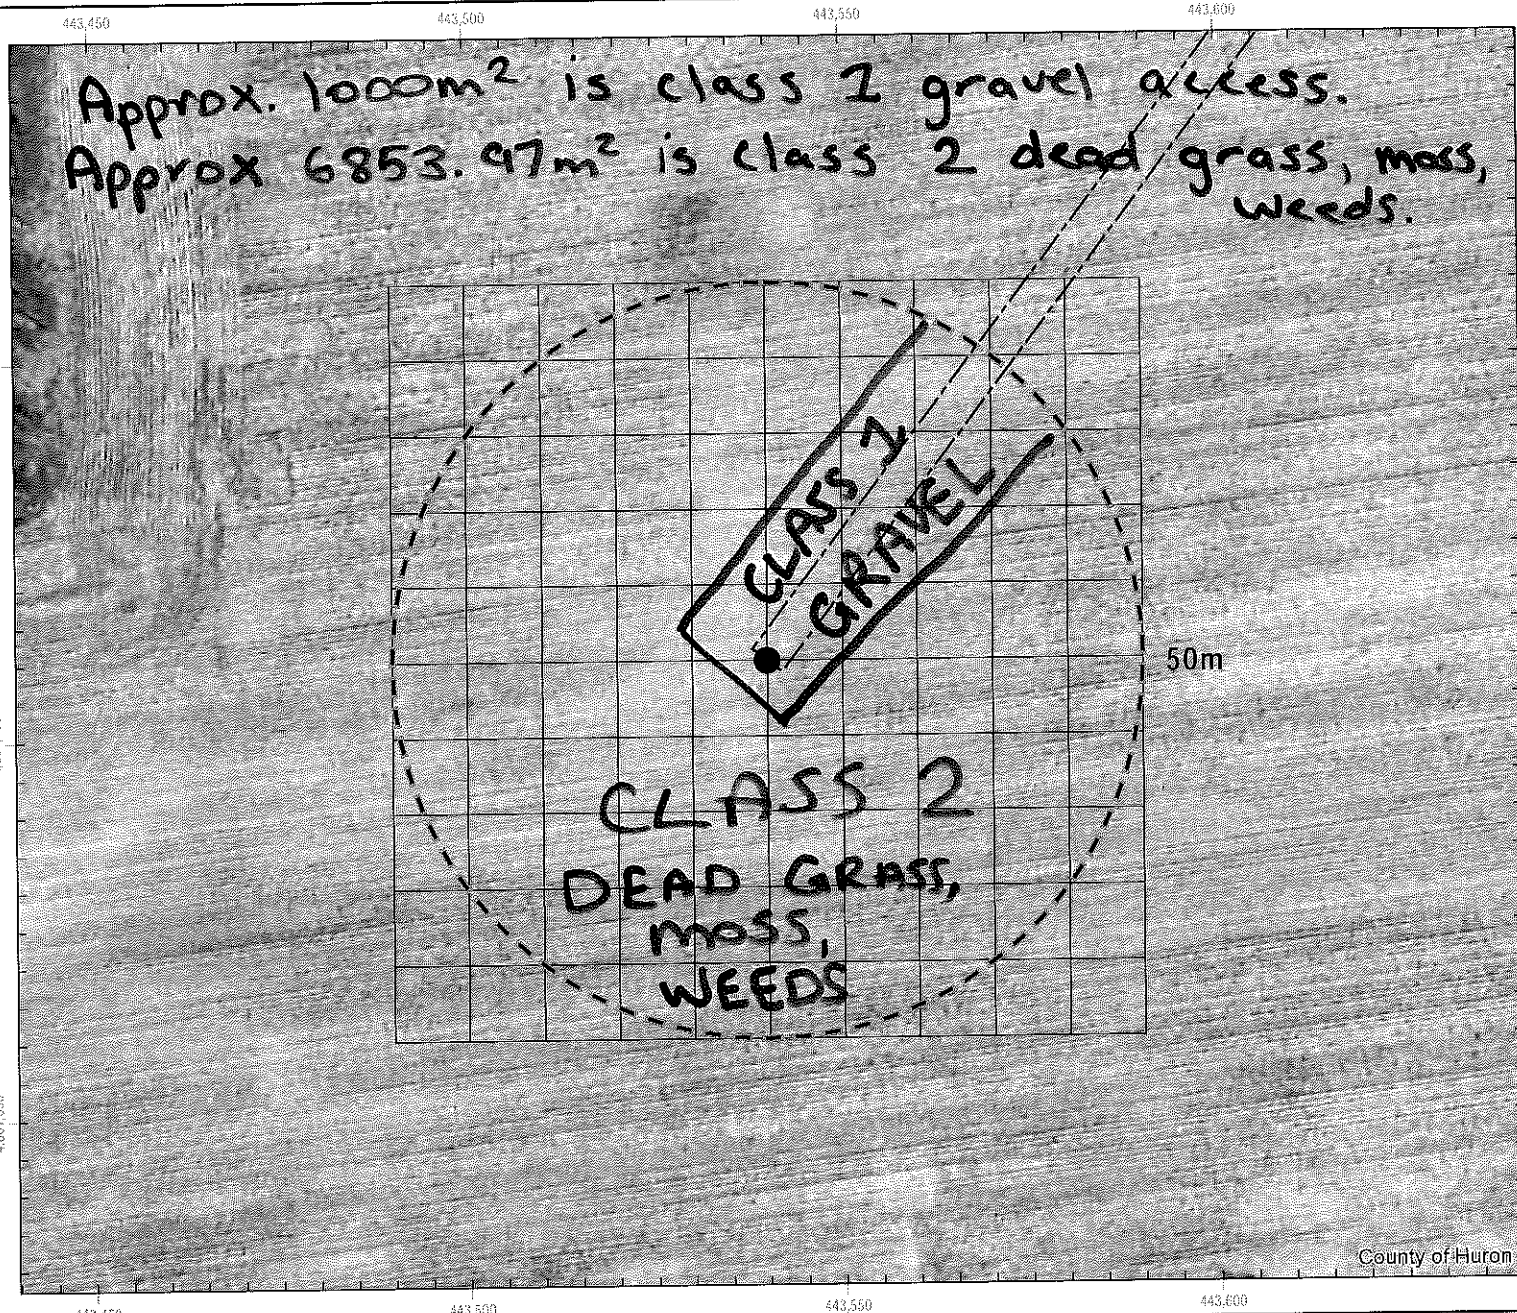 443,450 443,500 443,550 443,600
Approx. 1000m² is class 1 gravel access.
Approx 6853.97m² is class 2 dead grass, moss,
weeds.
CLASS 1
GRAVEL
50m
CLASS 2
DEAD GRASS,
MOSS,
WEEDS
County of Huron
443,500 443,550 443,600